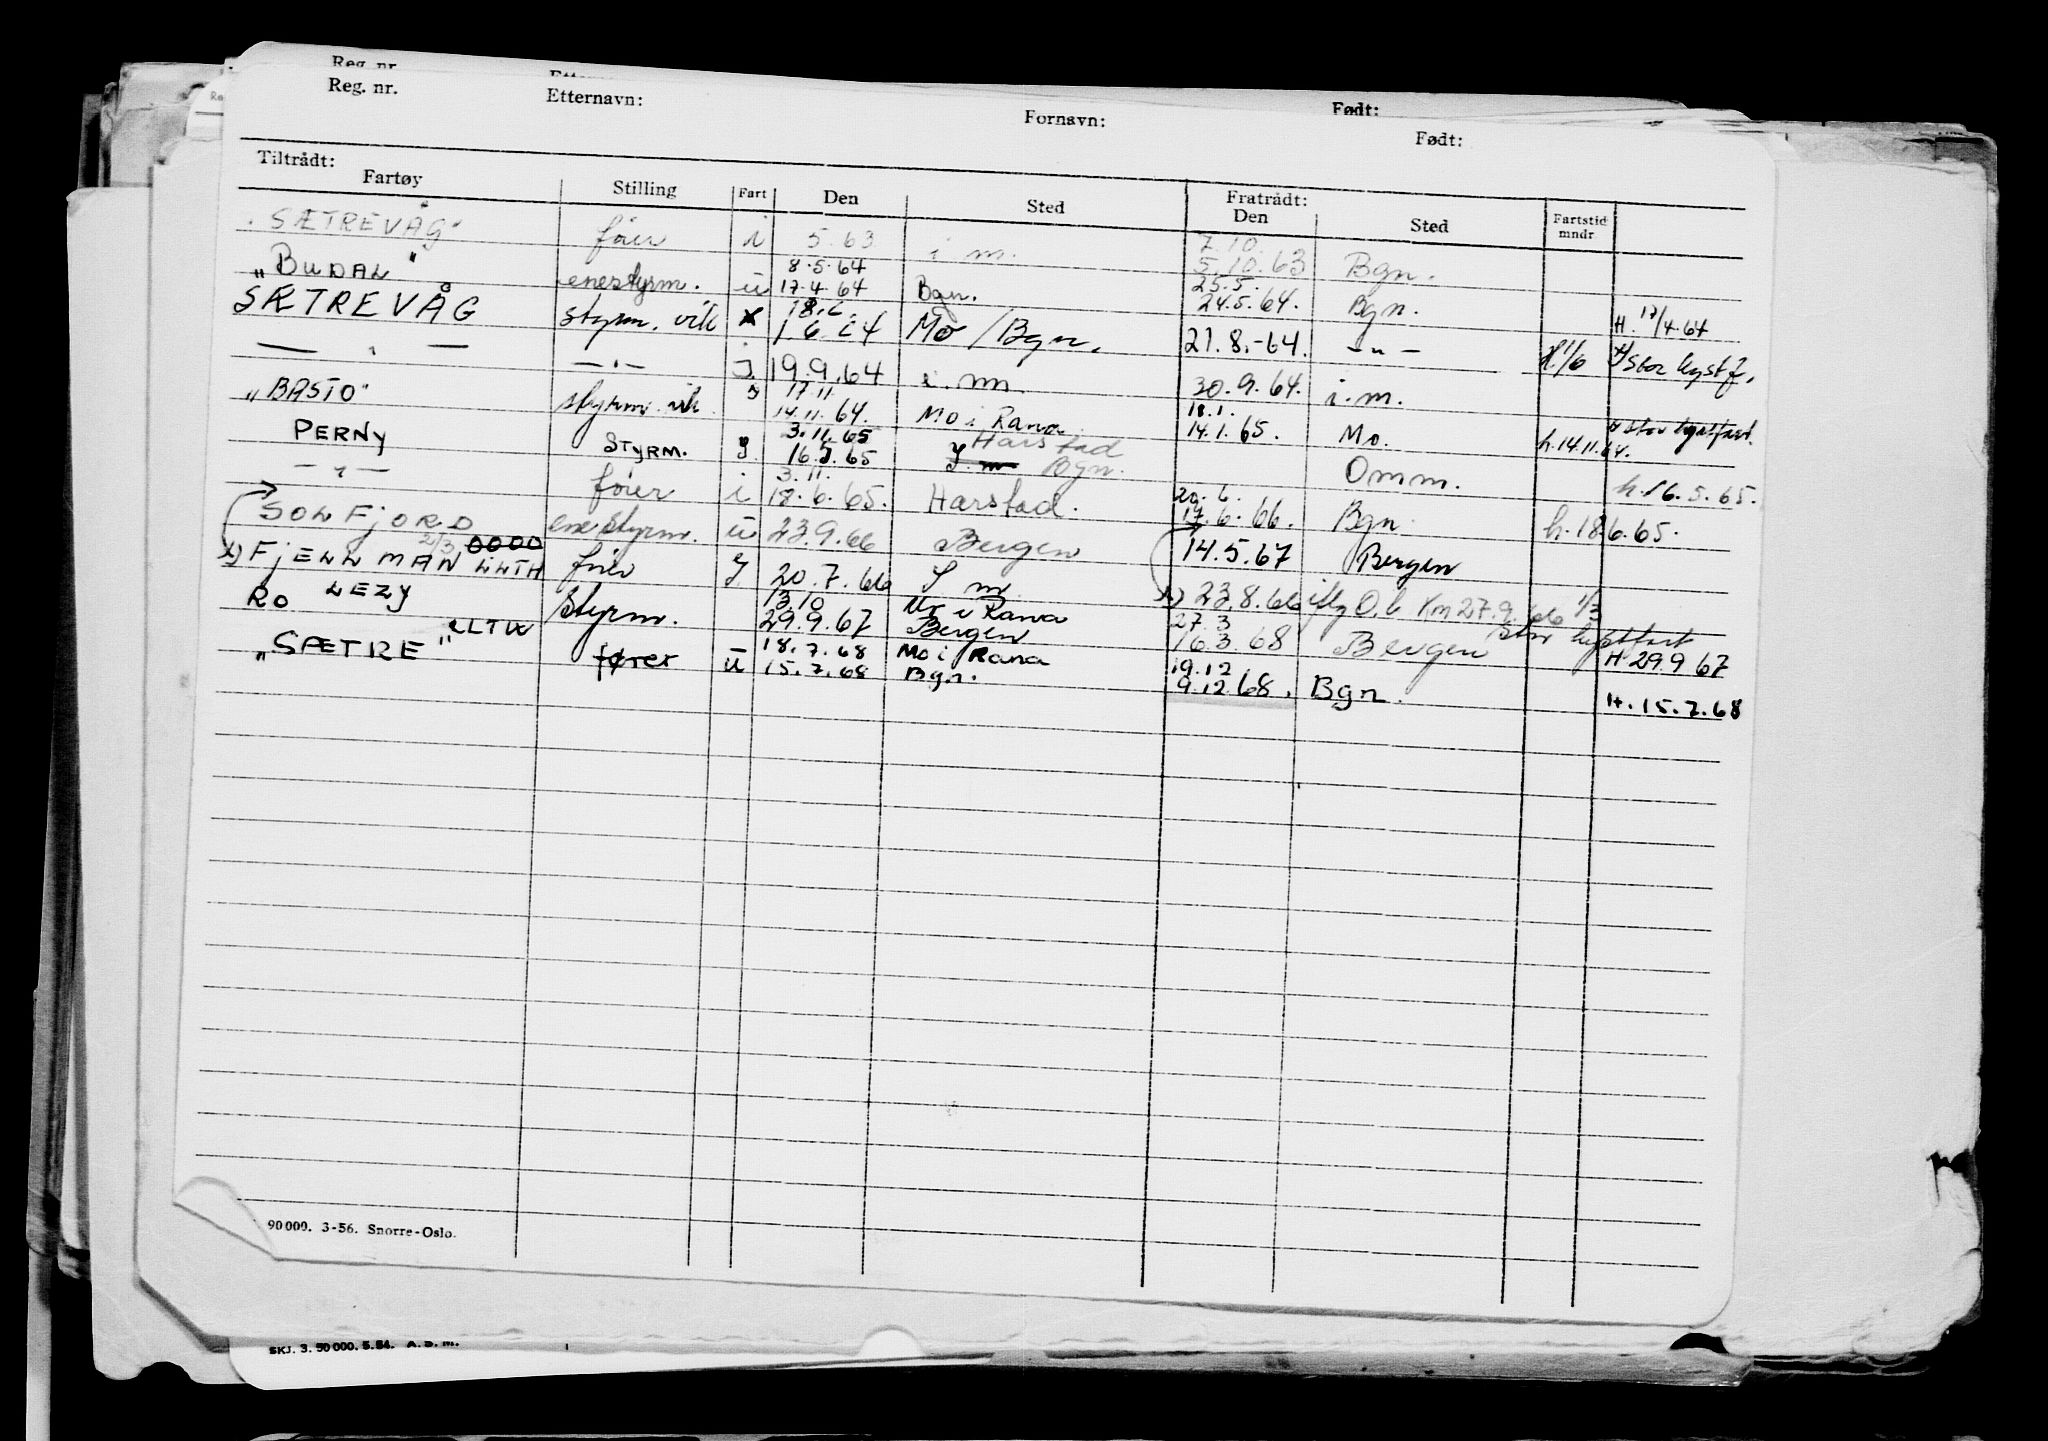 Reg. nr.
Reg. nr. Etternavn: Fornavn: Født:
Født:
Tiltrådt: Fratrådt:
Fartøy Stilling Fart Den Sted Den Sted Fartstid mndr
"SÆTREVÅG" fører i 5.63 i m. 7.10. 5.10.63 Bgn.
"BUDAL" enestyrm. u 8.5.64 17.4.64 Bgn. 25.5. 24.5.64. Bgn. H. 17/4.64
SÆTREVÅG styrm. vik x 18.6. 1.6.64 Mo / Bgn. 21.8.-64. -"- H 1/6 x) Stor kystf.
— " — — " — J. 19.9.64 i. m. 30.9.64. i.m.
"BASTO" styrm. vik. J 17.11 14.11.64. Mo i Rana 18.1. 14.1.65. Mo. h.14.11.64. x stor kystfart.
PERNY STYRM. J. 3.11.65 16.5.65 Harstad J. m Bgn. Omm. h.16.5.65.
— " — fører i 3.11. 18.6.65. Harstad. 20.6. 17.6.66. Bgn. h.18.6.65.
SOLFJORD enestyrm. u 23.9.66 Bergen 14.5.67 Bergen
x) FJELLMAN 2/3 0000 LLTH fører J 20.7.66 J m x) 23.8.66 iflg O.b Km 27.9.66 1/3
RO LEZY Styrm. 13.10 29.9.67 Mo i Rana Bergen 27.3 16.3.68 Bergen Stor kystfart H 29.9 67
"SÆTRE" LLTW fører u 18.7.68 15.7.68 Mo i Rana Bgn. 19.12 9.12.68. Bgn. H. 15.7.68
90000. 3-56. Snorre-Oslo.
SKJ. 3. 50 000. 5.54. A. S. M.